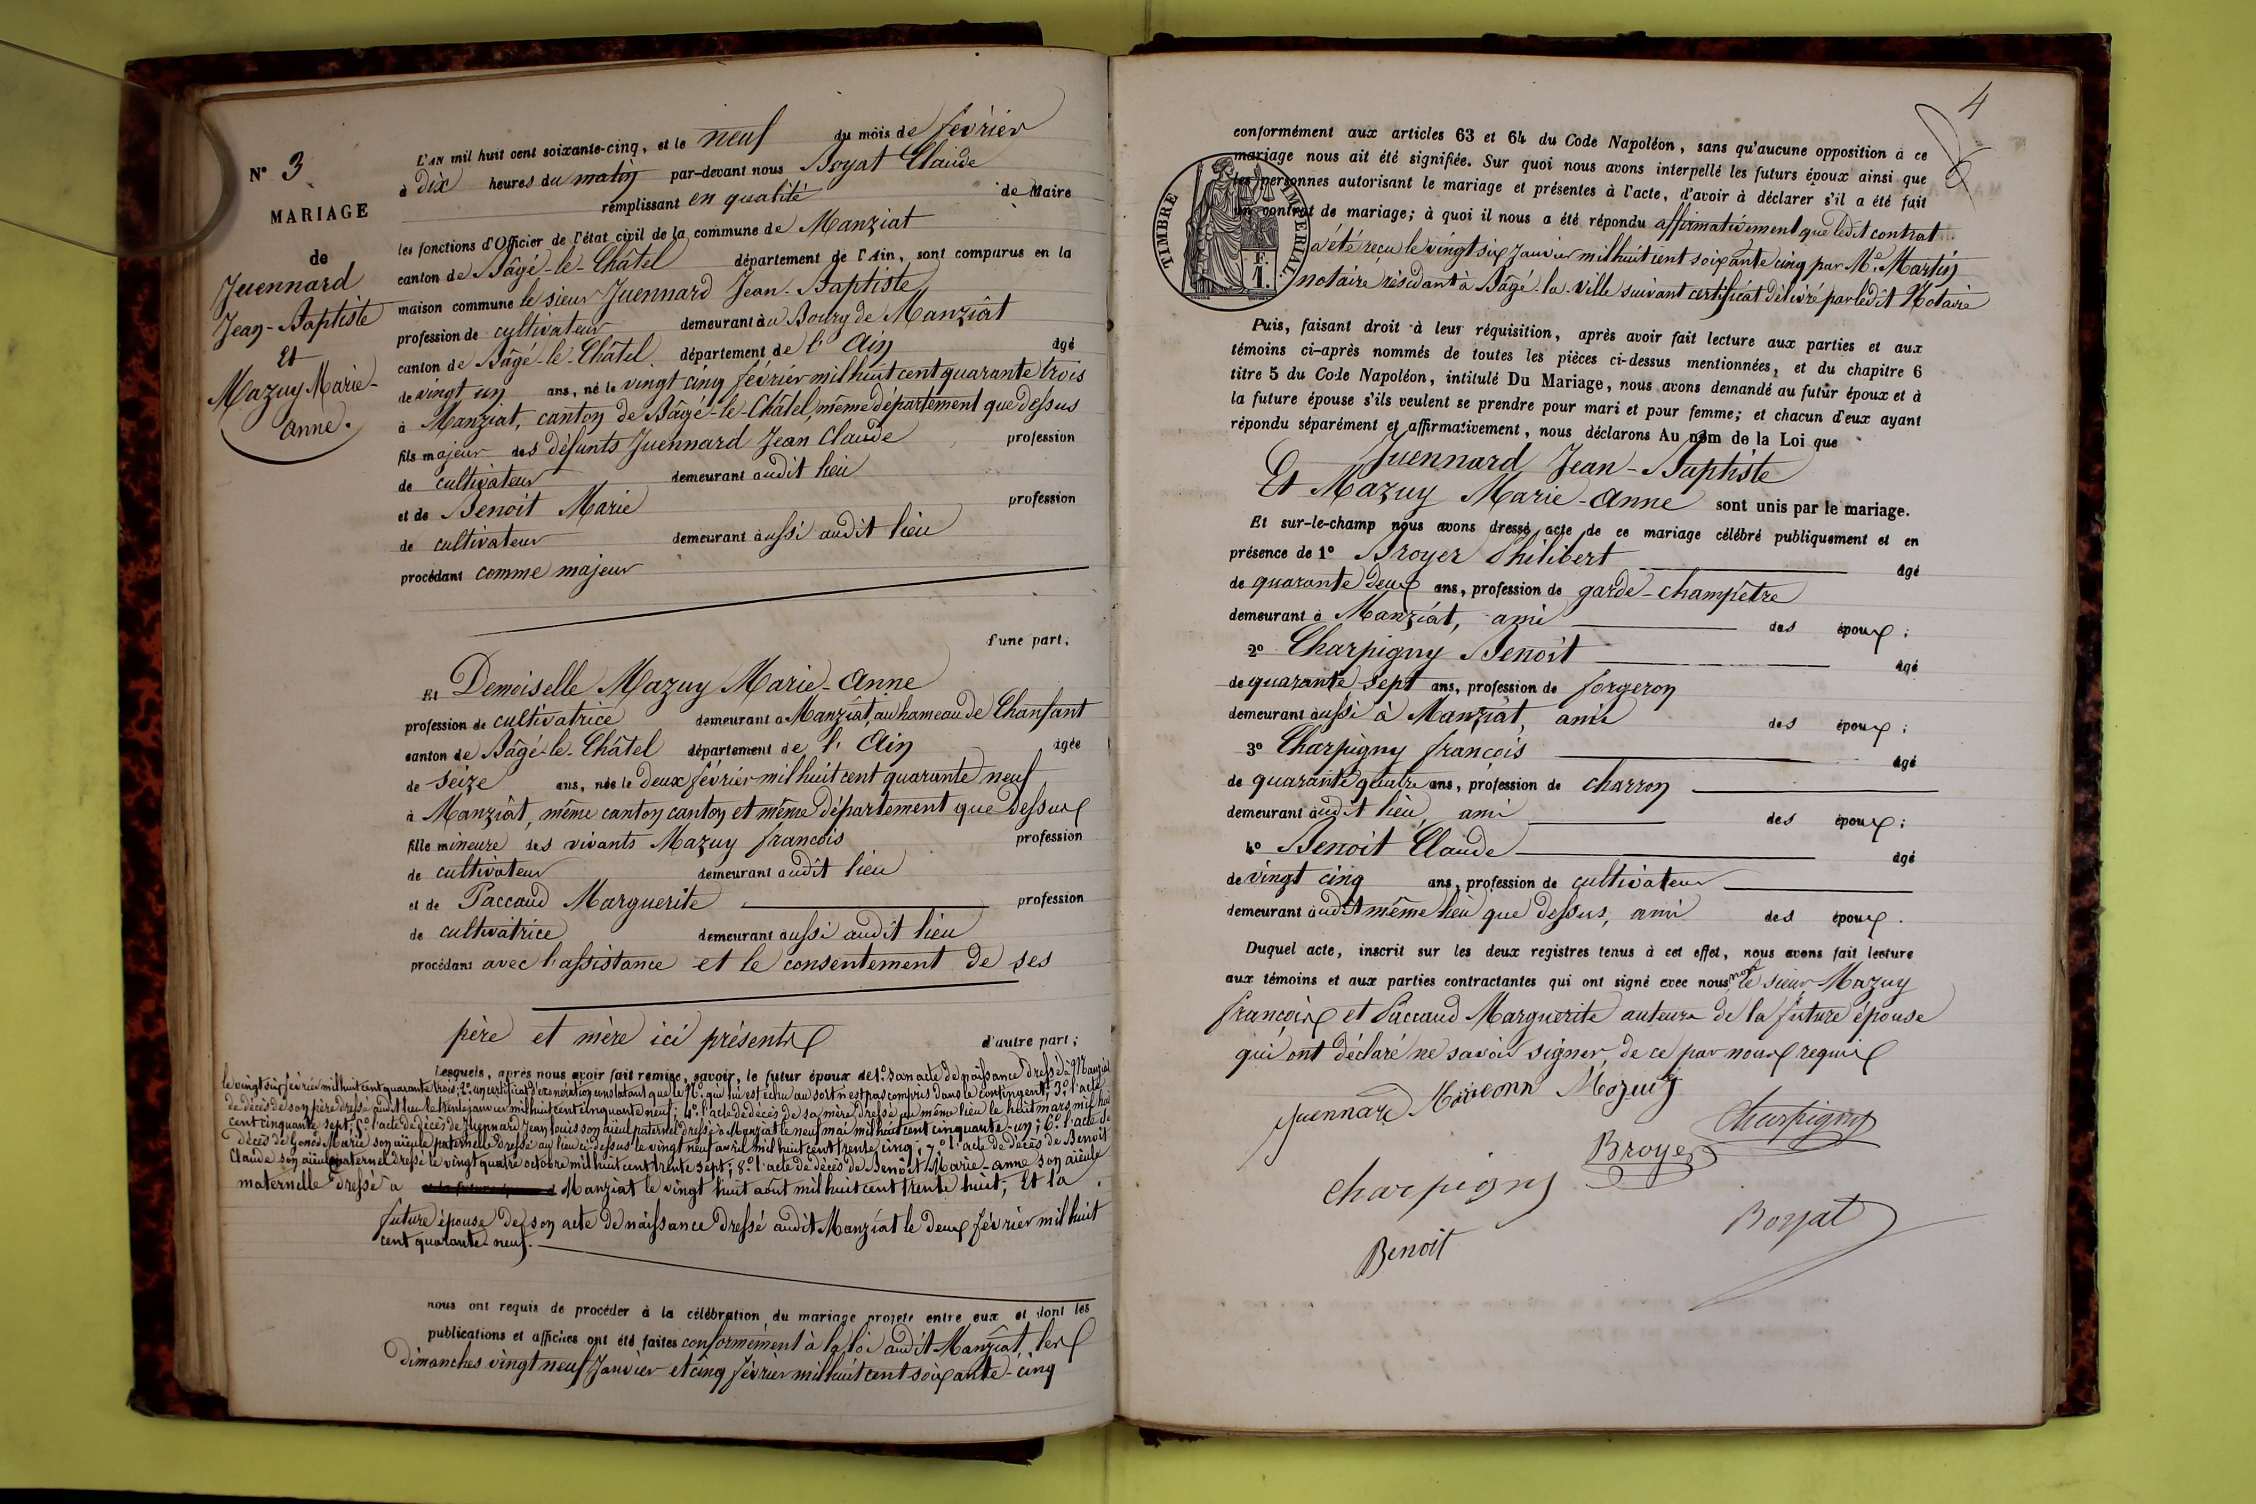 N° 3
MARIAGE
de
Juennard
Jean-Baptiste
Et
Mazuy Marie-
anne.
L'AN mil huit cent soixante-cinq, et le neuf du mois de février
à dix heures du matin par-devant nous Boyat Claude
remplissant en qualité de Maire
les fonctions d'Officier de l'état civil de la commune de Manziat
canton de Bâgé-le-Châtel département de l'Ain, sont comparus en la
maison commune le sieur Juennard Jean-Baptiste
profession de cultivateur demeurant au Bourg de Manziat
canton de Bâgé-le-Châtel département de l'Ain âgé
de vingt un ans, né le vingt cinq février mil huit cent quarante trois
à Manziat, canton de Bâgé-le-Châtel, même département que dessus
fils majeur des défunts Juennard Jean Claude profession
de cultivateur demeurant audit lieu
et de Benoit Marie profession
de cultivateur demeurant aussi audit lieu
procédant comme majeur
d'une part;
Et Demoiselle Mazuy Marie-Anne
profession de cultivatrice demeurant à Manziat, au hameau de Chanfant
canton de Bâgé-le-Châtel département de l'Ain âgée
de seize ans, née le deux février mil huit cent quarante neuf
à Manziat, même canton canton et même département que dessus
fille mineure des vivants Mazuy francois profession
de cultivateur demeurant audit lieu
et de Paccaud Marguerite profession
de cultivatrice demeurant aussi audit lieu
procédant avec l'assistance et le consentement de ses
père et mère ici présents d'autre part;
Lesquels, après nous avoir fait remise, savoir, le futur époux de 1° son acte de naissance dressé à Manziat
le vingt six février mil huit cent quarante trois; 2° un certificat d'exonération constatant que le N° qui lui est échu au sort n'est pas compris dans le contingent; 3° l'acte
de décès de son père dressé audit lieu le trente janvier mil huit cent cinquante neuf; 4° l'acte de décès de sa mère, dressé au même lieu le huit mars mil huit
cent cinquante sept; 5° l'acte de décès de Juennard Jean Louis son aïeul paternel dressé à Manziat le neuf mai mil huit cent cinquante-un; 6° l'acte de
décès de Marie son aïeule paternelle dressé au lieu ci-dessus le vingt neuf avril mil huit cent trente cinq; 7° l'acte de décès de Benoit
Claude son aïeul maternel dressé le vingt quatre octobre mil huit cent trente sept; 8° l'acte de décès de Benoit Marie-anne son aïeule
maternelle dressé à Manziat le vingt huit août mil huit cent trente huit; Et la
future épouse de son acte de naissance dressé audit Manziat le deux février mil huit
cent quarante-neuf.
nous ont requis de procéder à la célébration du mariage projeté entre eux et dont les
publications et affiches ont été faites conformément à la loi audit Manziat, les
dimanches vingt neuf Janvier et cinq février mil huit cent soixante-cinq
4
TIMBRE IMPÉRIAL
F. 1.
conformément aux articles 63 et 64 du Code Napoléon, sans qu'aucune opposition à ce
mariage nous ait été signifiée. Sur quoi nous avons interpellé les futurs époux ainsi que
les personnes autorisant le mariage et présentes à l'acte, d'avoir à déclarer s'il a été fait
un contrat de mariage; à quoi il nous a été répondu affirmativement que ledit contrat
a été reçu le vingt six Janvier mil huit cent soixante cinq par Me Martin
notaire résidant à Bâgé-la-Ville suivant certificat délivré par ledit Notaire
Puis, faisant droit à leur réquisition, après avoir fait lecture aux parties et aux
témoins ci-après nommés de toutes les pièces ci-dessus mentionnées, et du chapitre 6
titre 5 du Code Napoléon, intitulé Du Mariage, nous avons demandé au futur époux et à
la future épouse s'ils veulent se prendre pour mari et pour femme; et chacun d'eux ayant
répondu séparément et affirmativement, nous déclarons Au nom de la Loi que
Juennard Jean-Baptiste
Et Mazuy Marie-Anne sont unis par le mariage.
Et sur-le-champ nous avons dressé acte de ce mariage célébré publiquement et en
présence de 1° Broyer Philibert âgé
de quarante deux ans, profession de garde-champêtre
demeurant à Manziat, ami des époux;
2° Charpigny Benoit âgé
de quarante sept ans, profession de forgeron
demeurant aussi à Manziat, ami des époux;
3° Charpigny françois âgé
de quarante quatre ans, profession de charron
demeurant audit lieu, ami des époux;
4° Benoit Claude âgé
de vingt cinq ans, profession de cultivateur
demeurant audit même lieu que dessus, ami des époux.
Duquel acte, inscrit sur les deux registres tenus à cet effet, nous avons fait lecture
aux témoins et aux parties contractantes qui ont signé avec nous, non le sieur Mazuy
françois et Paccaud Marguerite auteurs de la future épouse
qui ont déclaré ne savoir signer, de ce par nous requis
Juennard Mazuy
Charpigny
Broyer
Charpigny
Boyat
Benoit